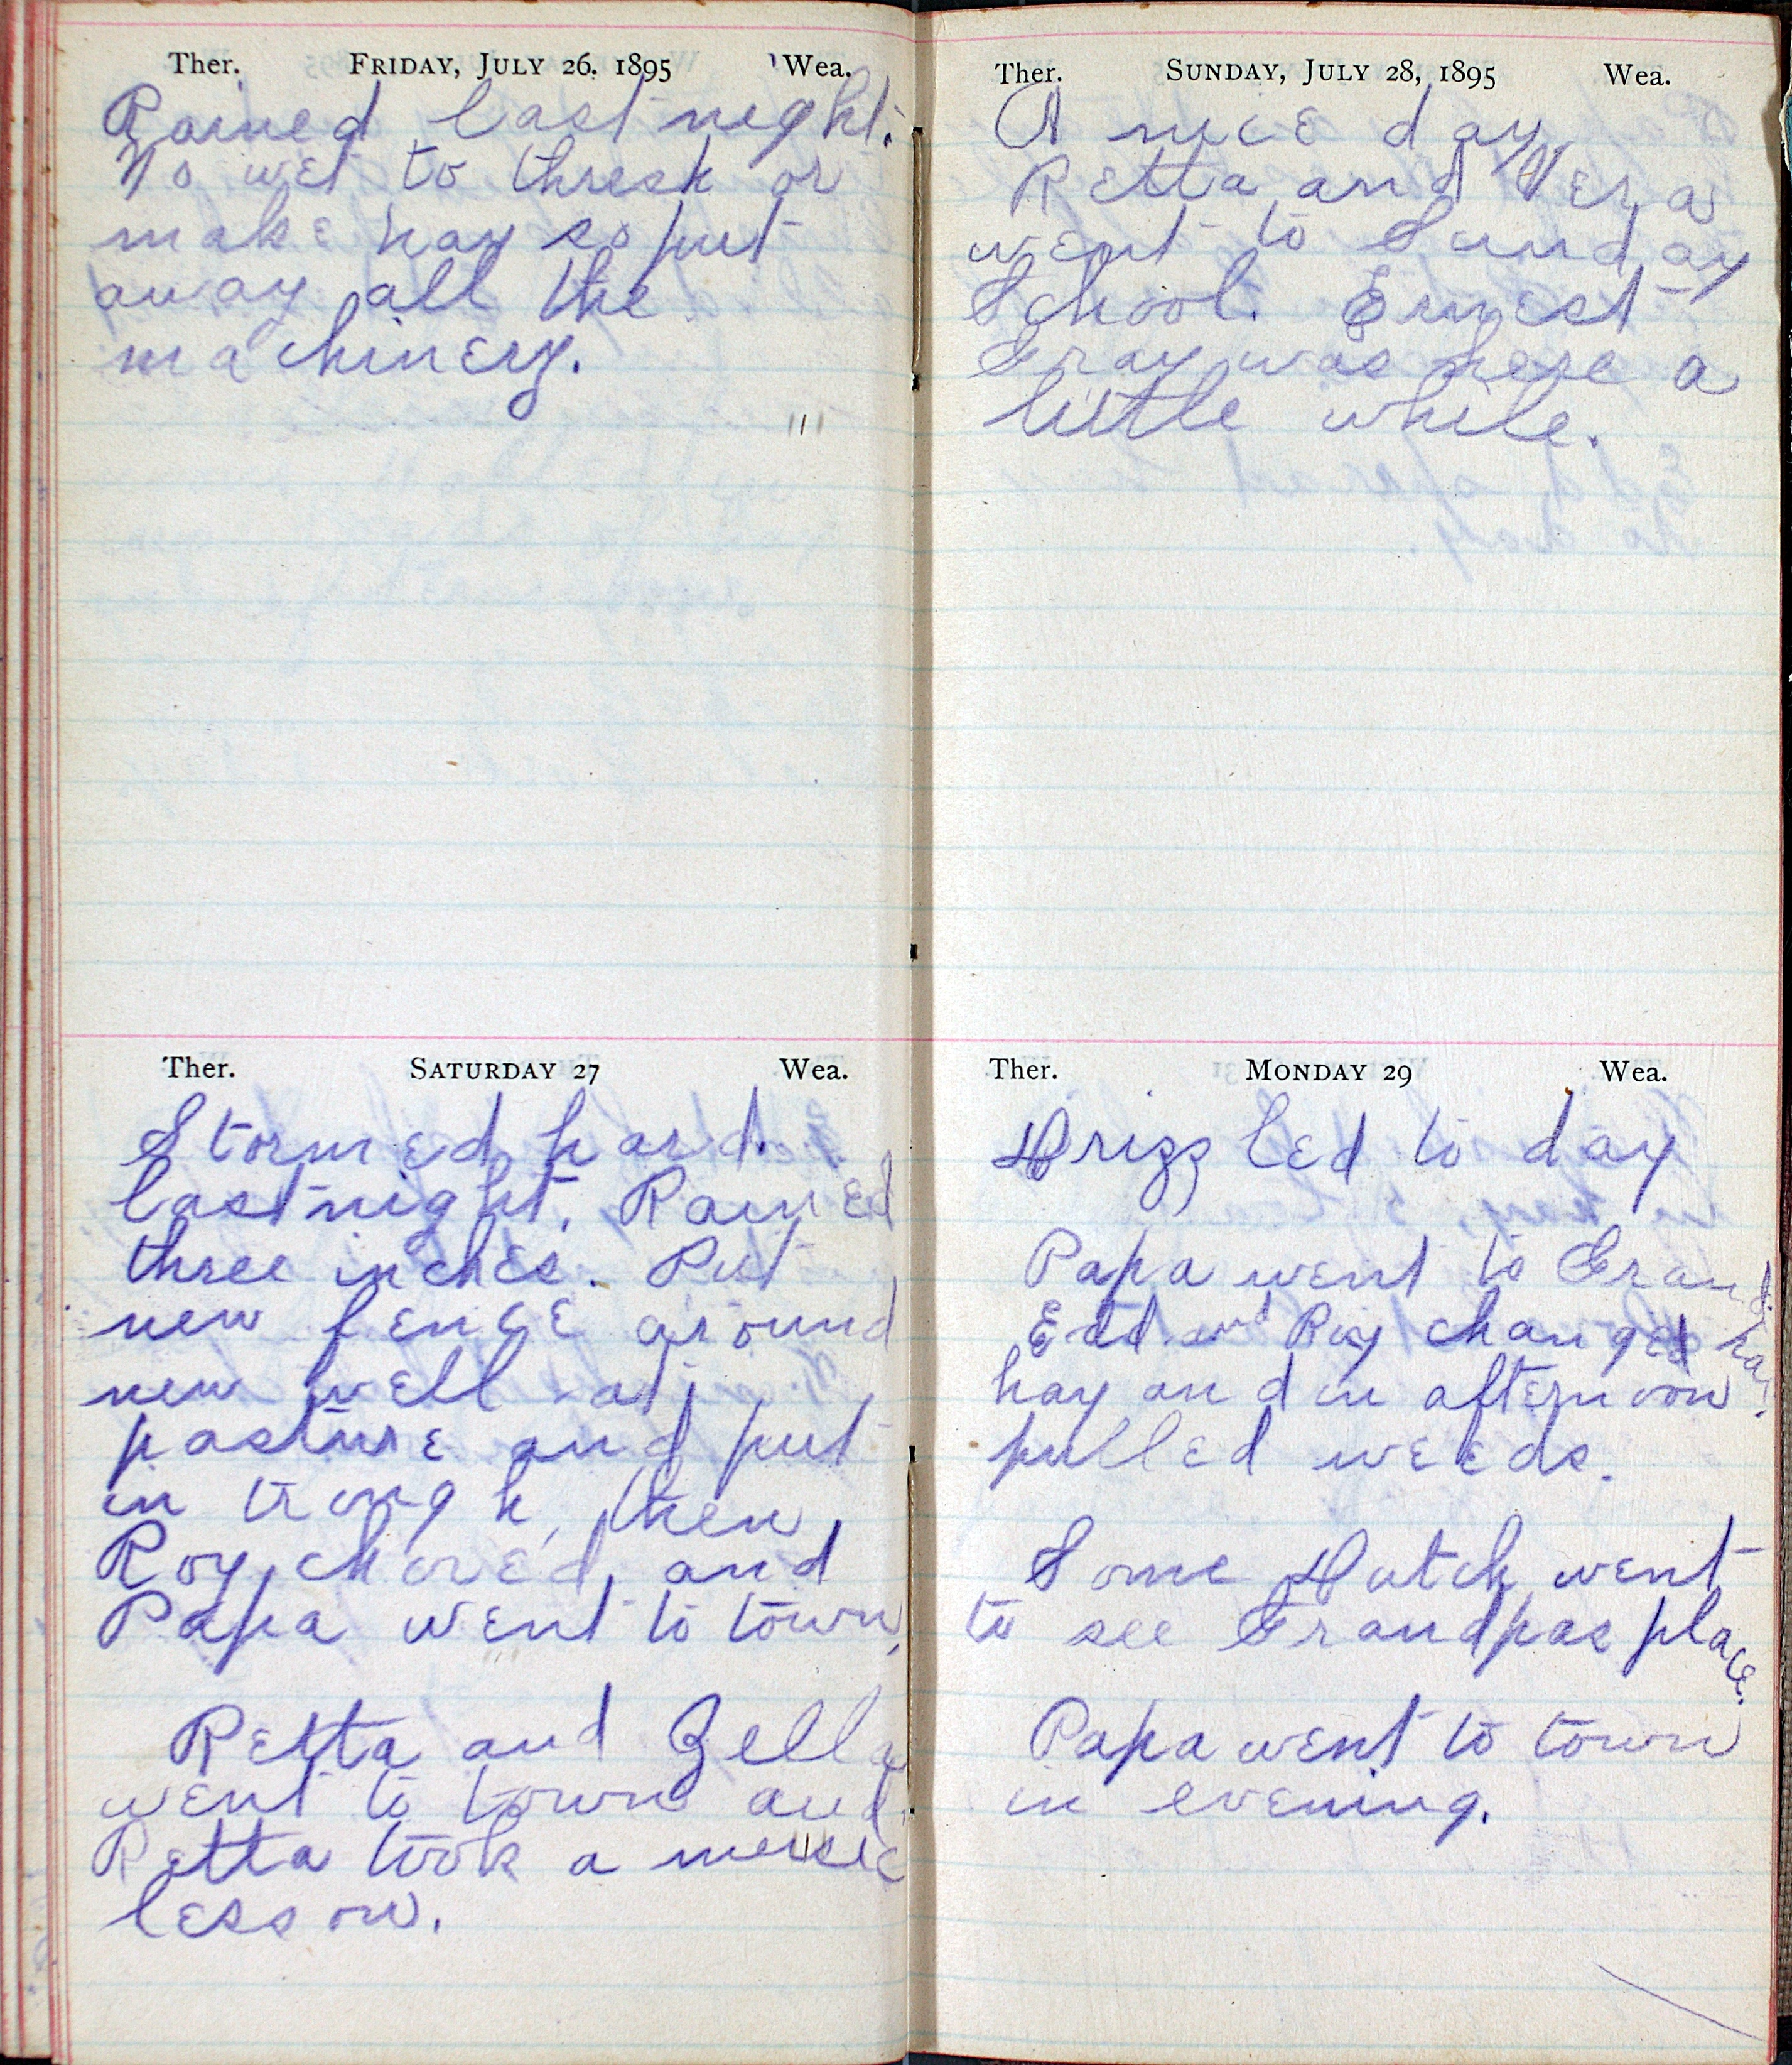 Ther. FRIDAY, JULY 26. 1895 Wea.
Rained last night.
To wet to thresh or
make hay so put
away all the
machinery.
Ther. SATURDAY 27 Wea.
Stormed hard
last night. Rained
three inches. Put
new fence around
new well at
pasture and put
in trough, then
Roy chored and
Papa went to town,
Retta and Zella
went to town and
Retta took a music
lesson.
Ther. SUNDAY, JULY 28, 1895 Wea.
A nice day
Retta and Vera
went to Sunday
School. Ernest
Gray was here a
little while.
Ther. MONDAY 29 Wea.
Drizzled to day
Papa went to Grand
Edd and Roy changed
hay and in afternoon
pulled weeds.
Some Dutch went
to see Grandpas place.
Papa went to town
in evening.